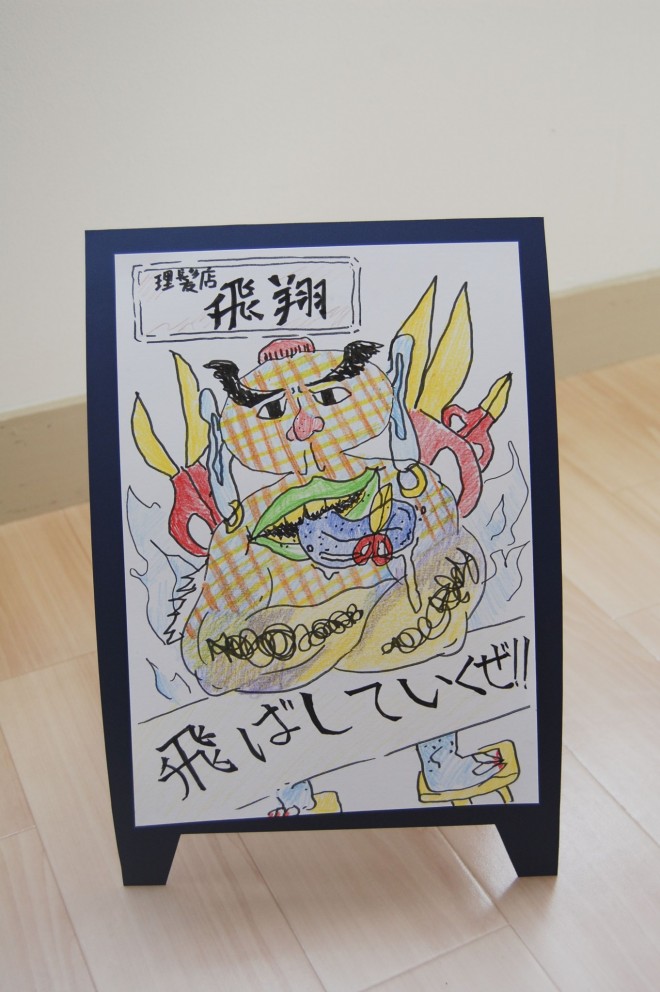 理髪店
飛翔
飛ばしていくぜ!!